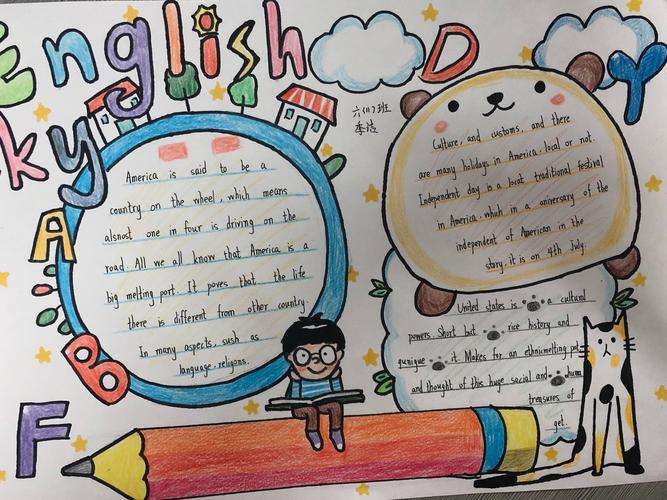 English
ky
D
Y
A
B
F
六(1)班
李洁
America is said to be a
country on the wheel, which means
alsnost one in four is driving on the
road. All we all know that America is a
big melting port. It poves that the life
there is different from other country.
In many aspects, sush as
language, religons.
Culture, and customs, and there
are many holidays in America, local or not.
Independent day is a locat traditional festival
in America, which in a aniversary of the
independent of American in the
story, it is on 4th July.
United states is a cultural
powers. Short but rice history and
qunique it. Makes for an ethnicmelting pet
and thought of this huge social and hum
treasures of
get.